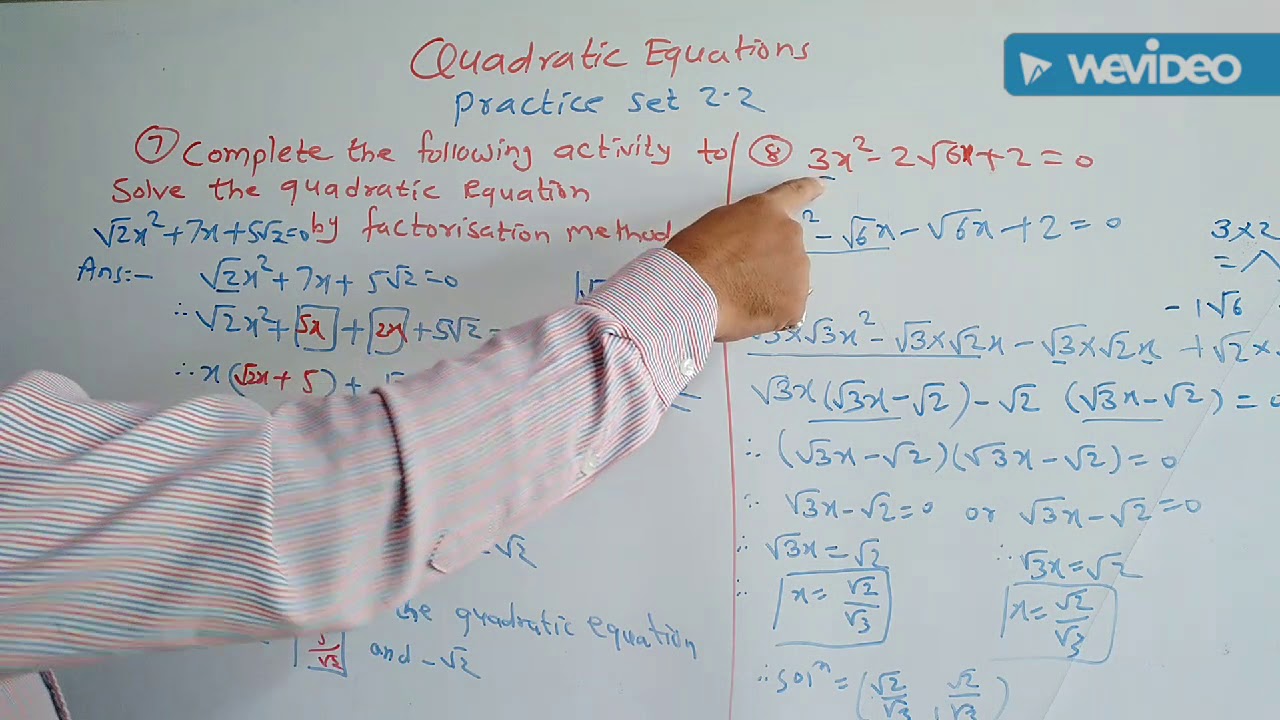 Quadratic Equations
Practice set 2.2
WEVIDEO
⑦ Complete the following activity to
Solve the quadratic Equation
√2x²+7x+5√2=0 by factorisation method
Ans:- √2x²+7x+5√2=0
∴ √2x²+5x+2x+5√2=
∴ x(√2x+5)+
-√2
the quadratic equation
and -√2
⑧ 3x²-2√6x+2=0
²-√6x-√6x+2=0
3×2
=
-1√6
×√3x²-√3×√2x-√3×√2x+√2×
√3x(√3x-√2)-√2(√3x-√2)=0
∴ (√3x-√2)(√3x-√2)=0
∴ √3x-√2=0 or √3x-√2=0
∴ √3x=√2 ∴ √3x=√2
∴ x=√2/√3 x=√2/√3
∴ solⁿ=(√2/√3, √2/√3)